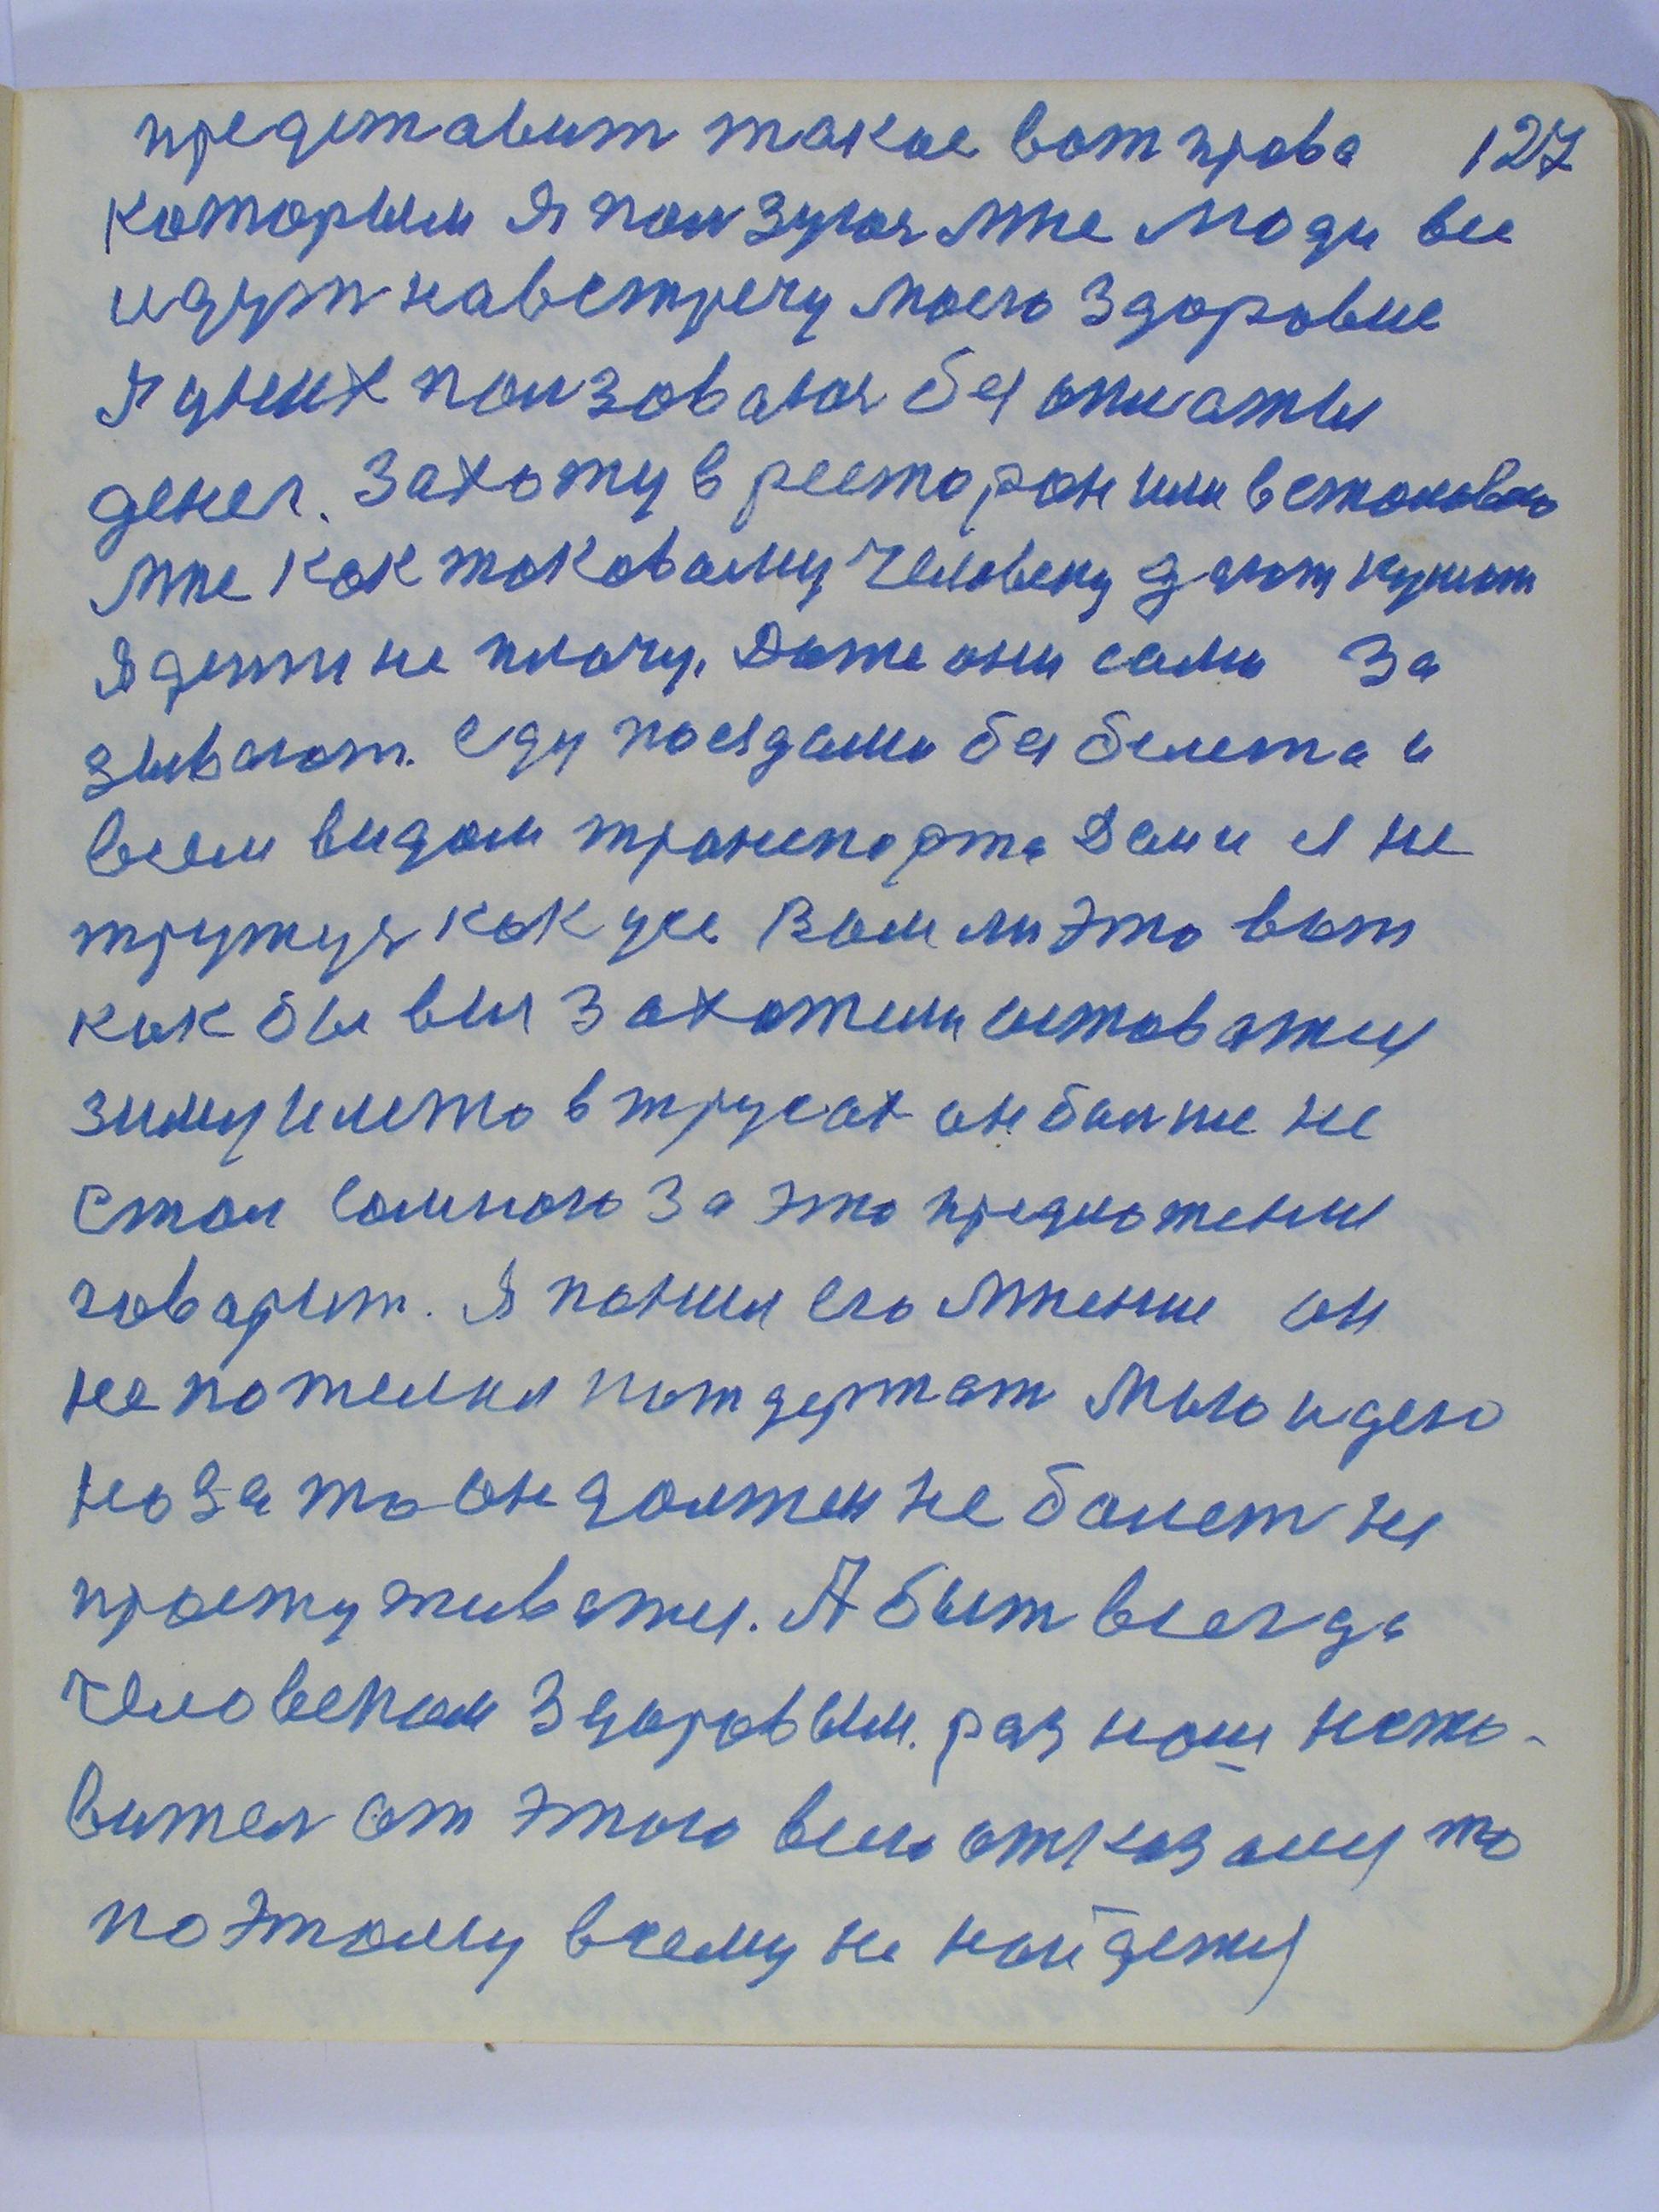 предетавит такое вот права 127
которым Я ползуюя мне люди все
идут навстречу моего здоровие
Я у них ползоваюя без оплаты
денег. Захожу в ресторон или в столовою
мне как таковому человеку дают кушат
Я денги не плачу. Даже они сами за
зывают. еду поездами без билета и
всем видом транспорта Даи и я не
тружуя как усе Вам ли это вот
как бы вы захотели оставатця
зиму илето в трусах он болше не
стал самною за это предложения
говорит. Я понял его мнение он
не пожелал потдержат мыю идею
но за то он должен не болет не
простуживатця. А быт всегда
человеком здоровым. раз наш нето-
вител от этого всего отказалця то
поэтому всему не найдетця